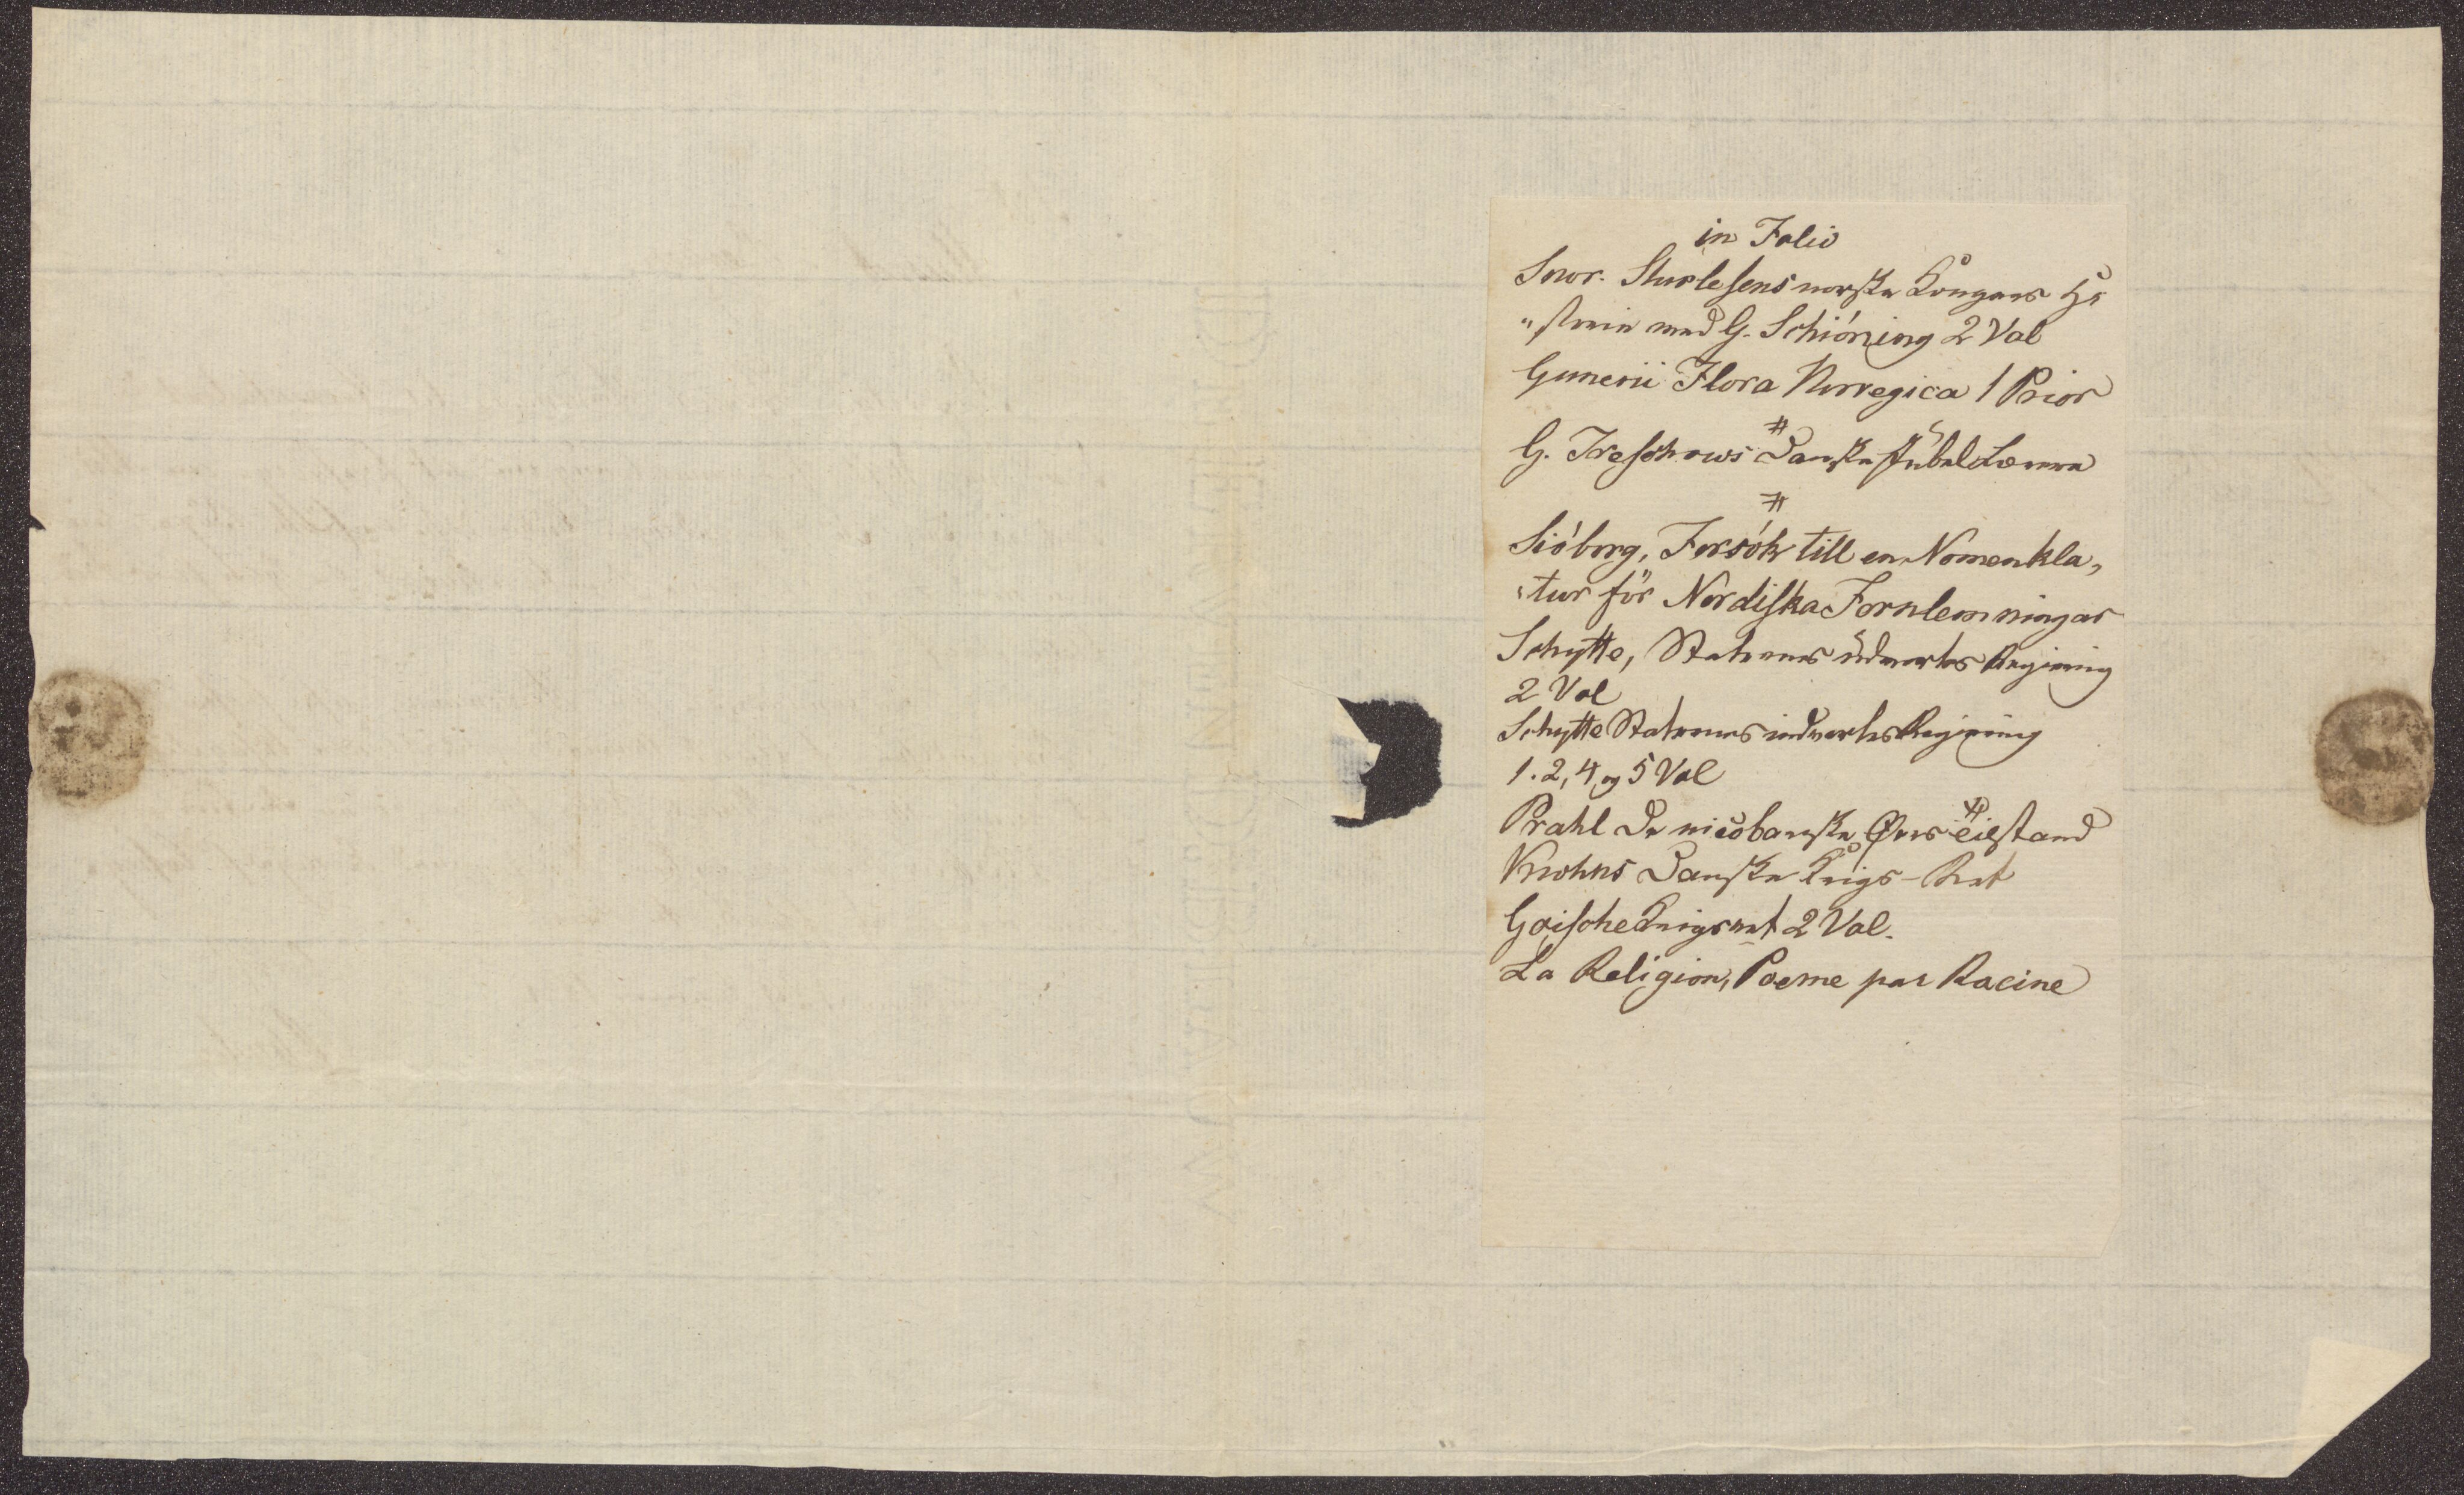 in Folio
Snor. Sturlesens norske Kongers Hi
"storie ved G. Schiöning 2 Vol
Gunerii Flora Norvegica / Prior
#
G. Treschows Danske Jubel Lærere
#
Siöborg, Forsök till en Nomenkla,
,tur för Nordiska Fornlemningar
Schytte, Staternes udvortes Regiering
2 Vol
Schytte Staternes indvortes Regiering
1. 2, 4, og 5 Vol
#
Prahl De nicobarske Øers
Krohns Danske Krigs-Ret
Krigsret 2 Vol.
La Religion, Poeme par Racine